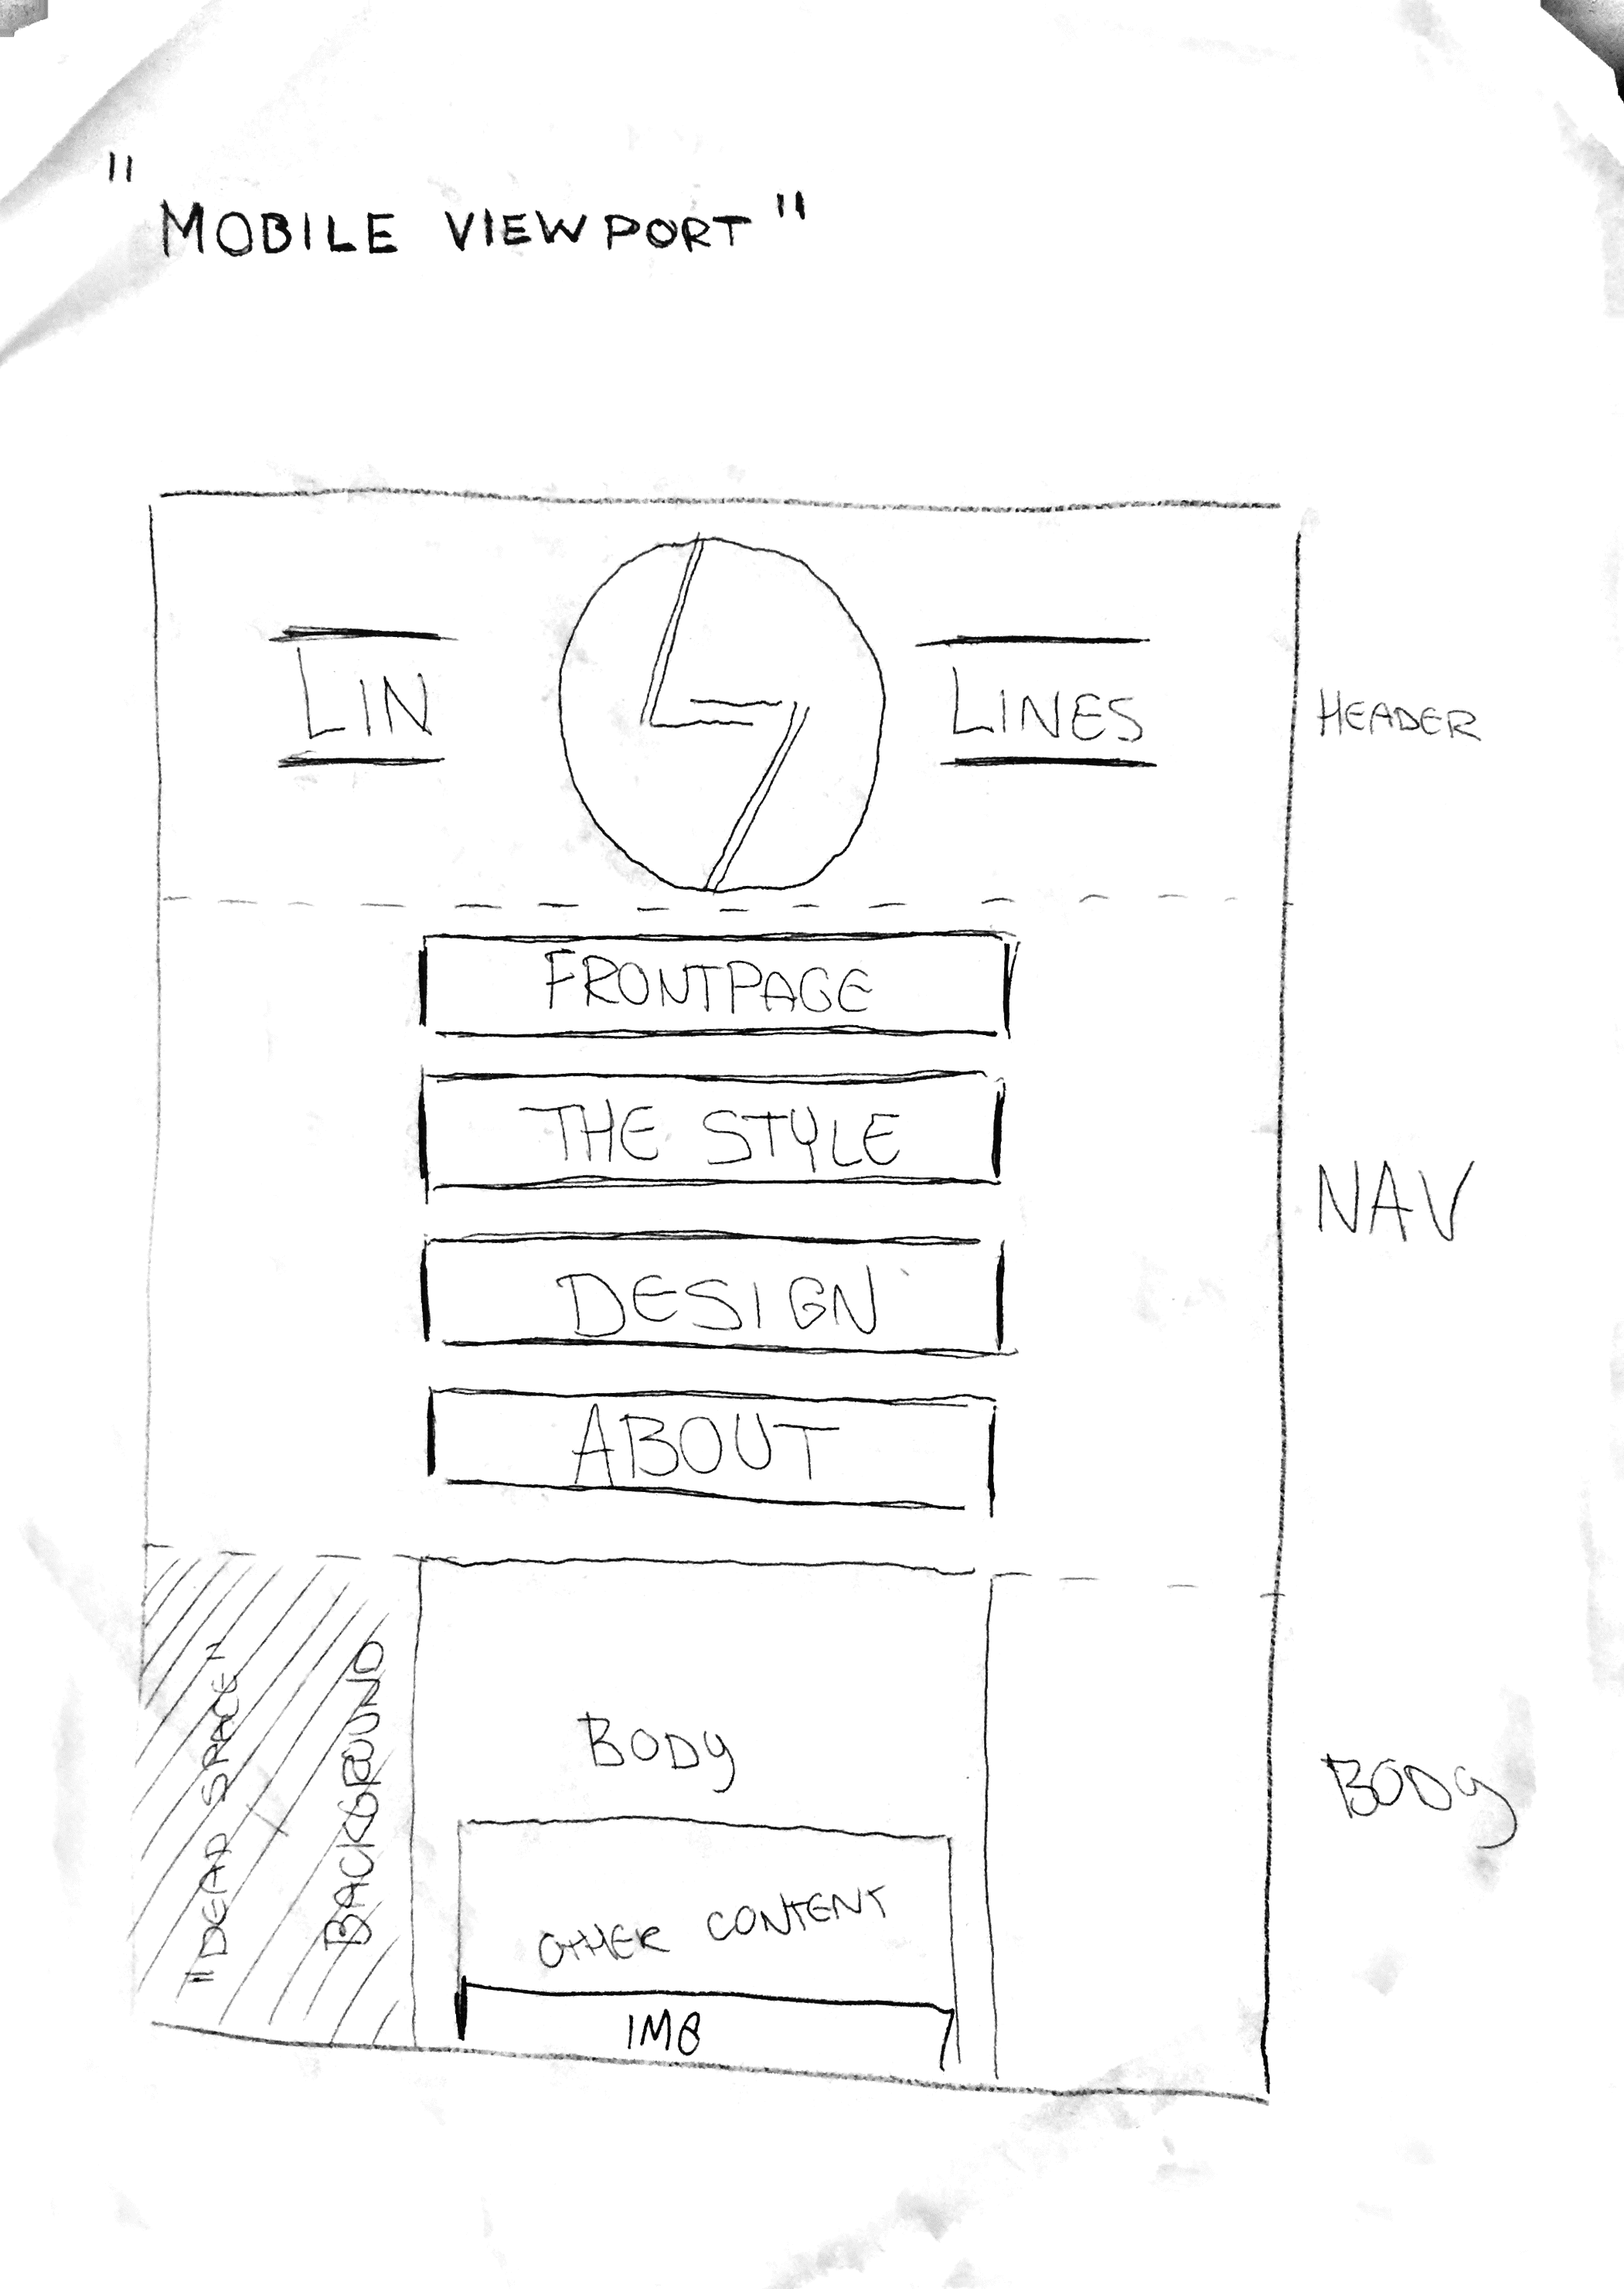 "MOBILE VIEWPORT"
LIN
LINES
HEADER
FRONTPAGE
THE STYLE
DESIGN
ABOUT
NAV
"DEAD SPACE"
BACKGROUND
BODY
BODY
OTHER CONTENT
IMG